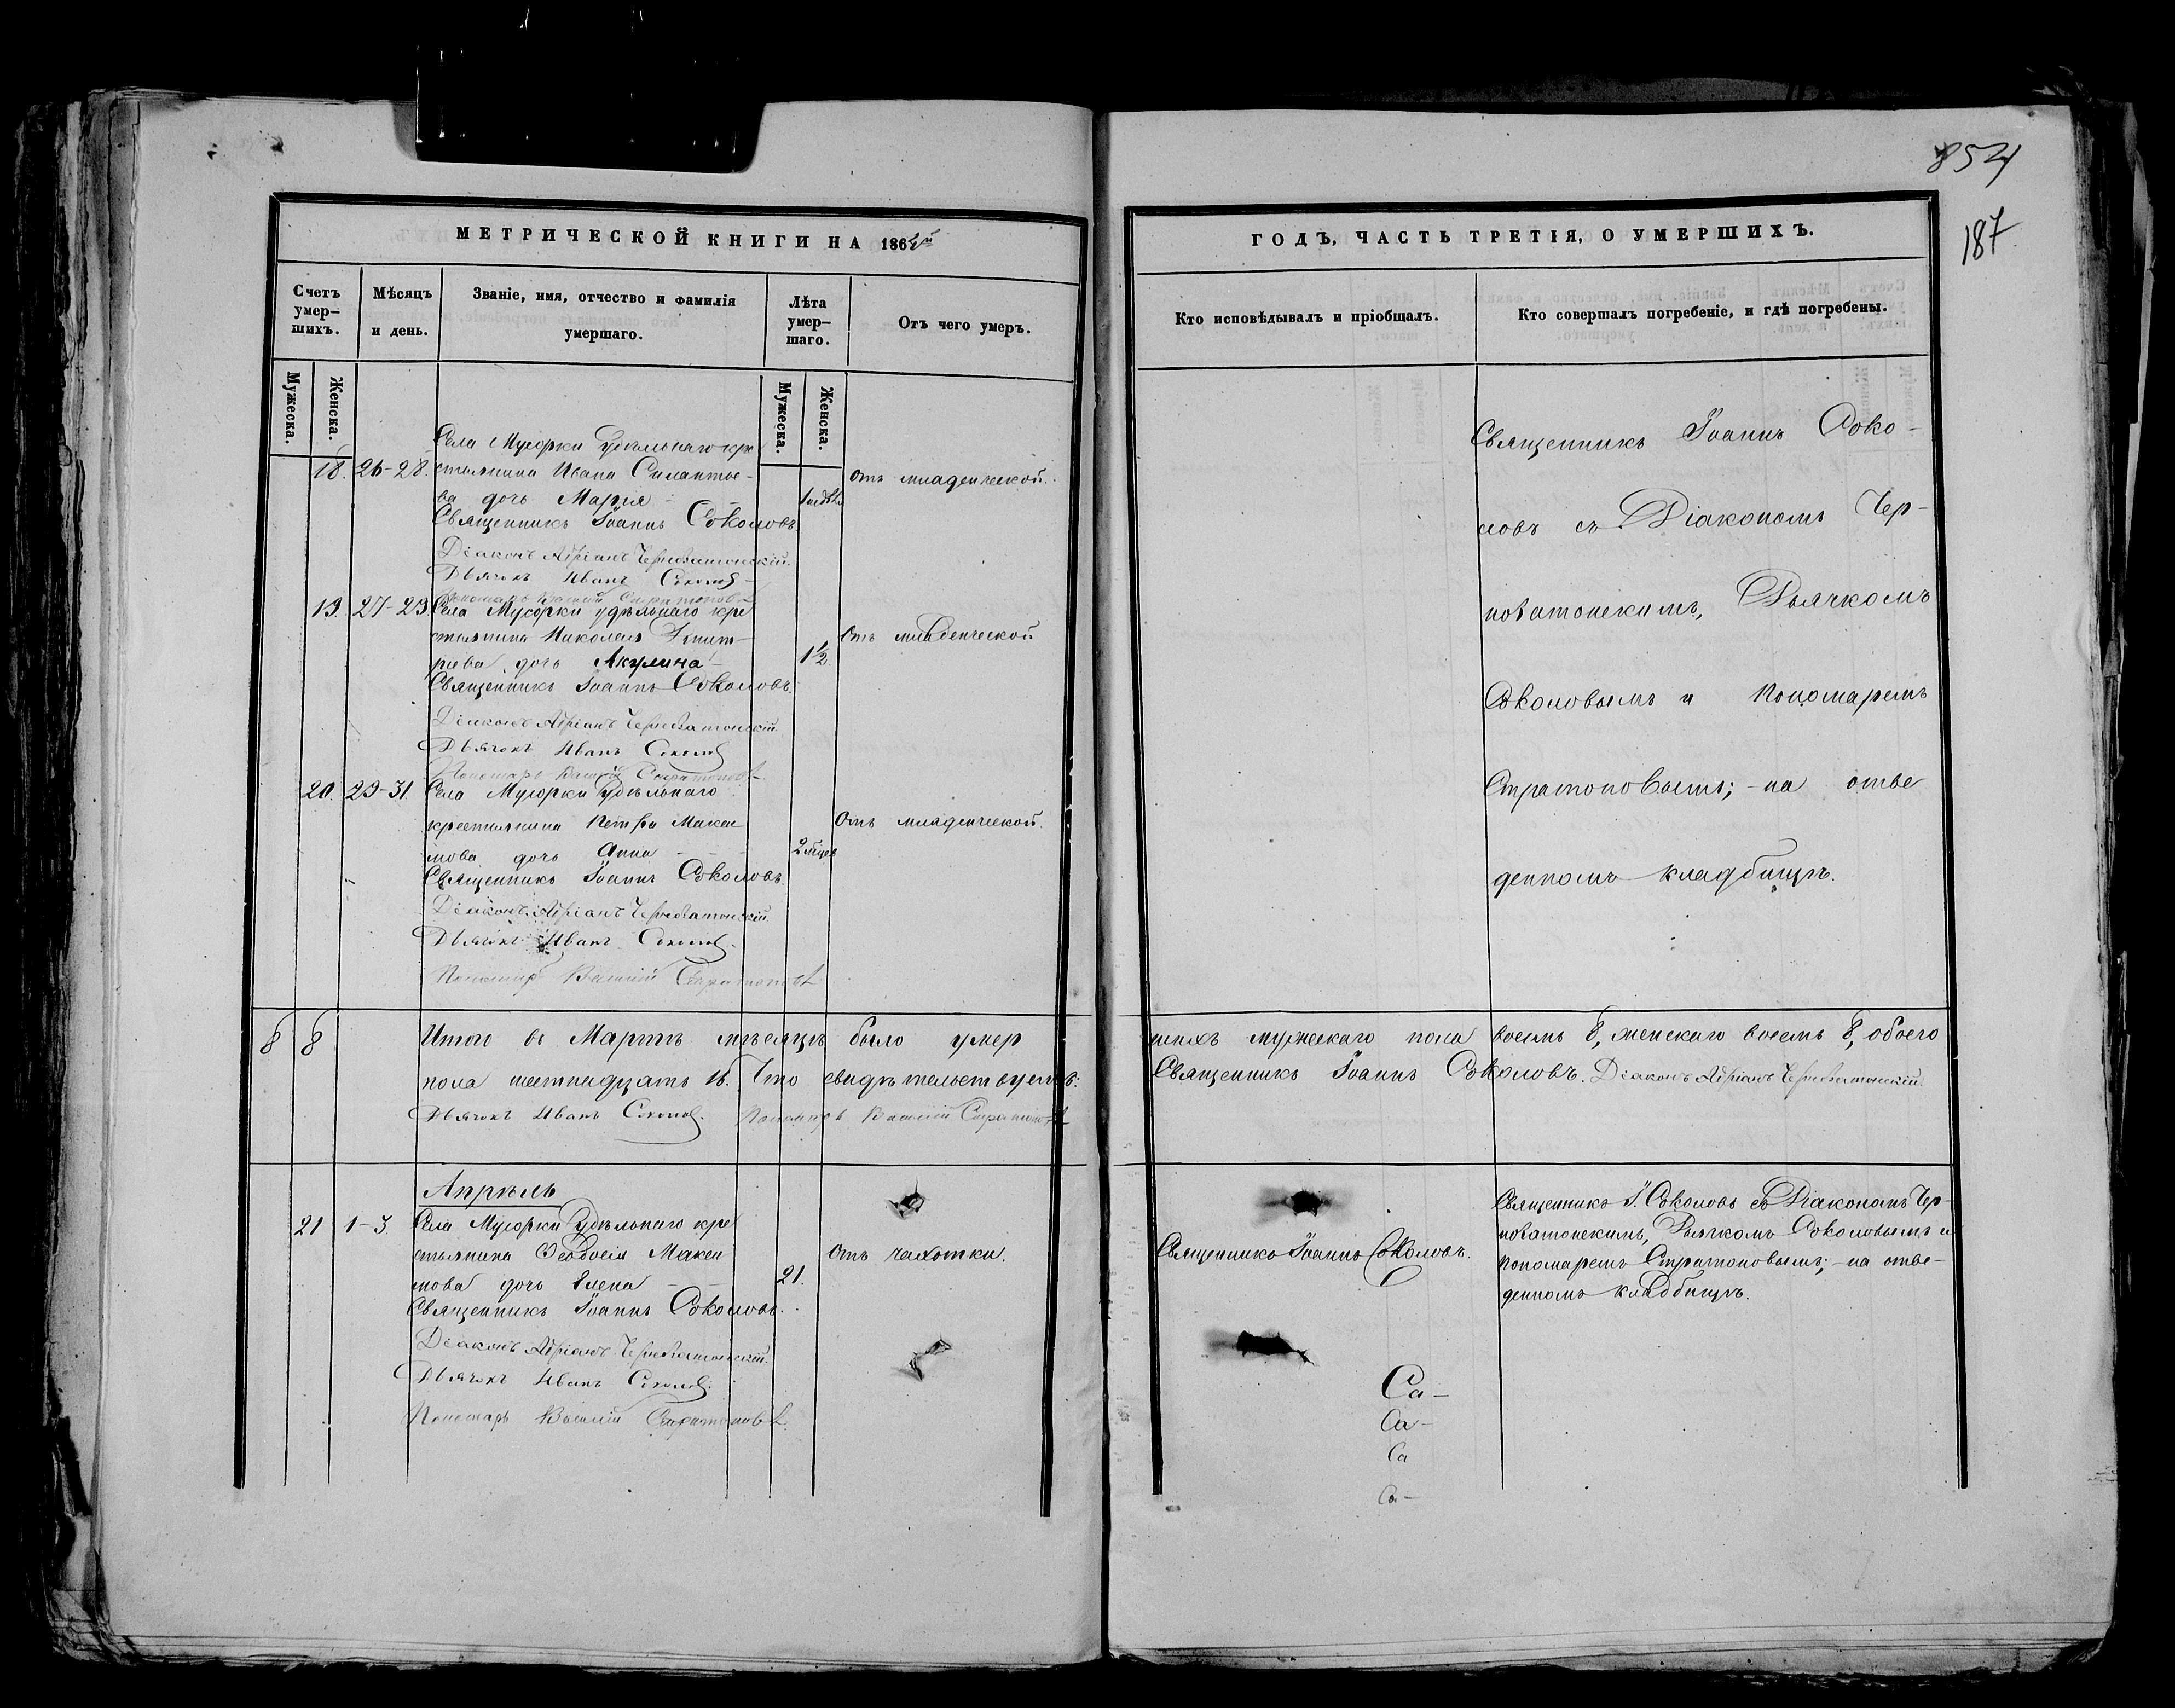 854
187
МЕТРИЧЕСКОЙ КНИГИ НА 186
ГОДЪ, ЧАСТЬ ТРЕТІЯ, О УМЕРШИХЪ.
Счетъ умер-
шихъ.
Мѣсяцъ
и день.
Званіе, имя, отчество и фамилія
умершаго.
Лѣта
умер-
шаго.
Отъ чего умеръ.
Кто исповѣдывалъ и пріобщалъ.
Кто совершалъ погребеніе, и гдѣ погребены.
Мужеска.
Женска.
Мужеска.
Женска.
Села Мусорки удѣльнаго кре
18. 26-28. стьянина Ивана Силантье-
ва дочь Марія
Отъ младенческой.
Священникъ Іоаннъ Соколовъ
Діаконъ Адріанъ Черноватонскій
Дьячокъ Иванъ Соколовъ
Пономарь Василій Стратоновъ
19. 27-29. Села Мусорки удѣльнаго кре
стьянина Николая Димит-
ріева дочь Акулина
1½
Отъ младенческой
Священникъ Іоаннъ Соколовъ.
Діаконъ Адріанъ Черноватонскій
Дьячокъ Иванъ Соколовъ
Пономарь Василій Стратоновъ
20. 29-31. Села Мусорки Удѣльнаго
крестьянина Петра Макси
мова дочь Анна
2 мѣсяц.
Отъ младенческой.
Священникъ Іоаннъ Соколовъ.
Діаконъ Адріанъ Черноватонскій
Дьячокъ Иванъ Соколовъ.
Пономарь Василій Стратоновъ
Священникъ Іоаннъ Соко-
ловъ съ Діакономъ Чер-
новатонскимъ, Дьячкомъ
Соколовымъ и Пономаремъ
Стратоновымъ; - на отве
денномъ кладбищѣ.
8 8 Итого въ Мартѣ мѣсяцѣ было умер
шихъ мужескаго пола восемь 8, женскаго восемь 8, обоего
пола шестнадцать 16. Что свидѣтельствуемъ:
Священникъ Іоаннъ Соколовъ. Діаконъ Адріанъ Черноватонскій
Дьячокъ Иванъ Соколовъ. Пономарь Василій Стратоновъ
Апрѣль
21 1-3 Села Мусорки Удѣльнаго кре
стьянина Ѳеодосія Макси
мова дочь Елена
21.
Отъ чахотки.
Священникъ Іоаннъ Соколовъ.
Священникъ Іоаннъ Соколовъ.
Діаконъ Адріанъ Черноватонскій
Дьячокъ Иванъ Соколовъ
Пономарь Василій Стратоновъ
Священникъ І. Соколовъ съ Діакономъ Чер-
новатонскимъ, Дьячкомъ Соколовымъ и
Пономаремъ Стратоновымъ; - на отве-
денномъ кладбищѣ.
Са-
Са-
Са
Са-